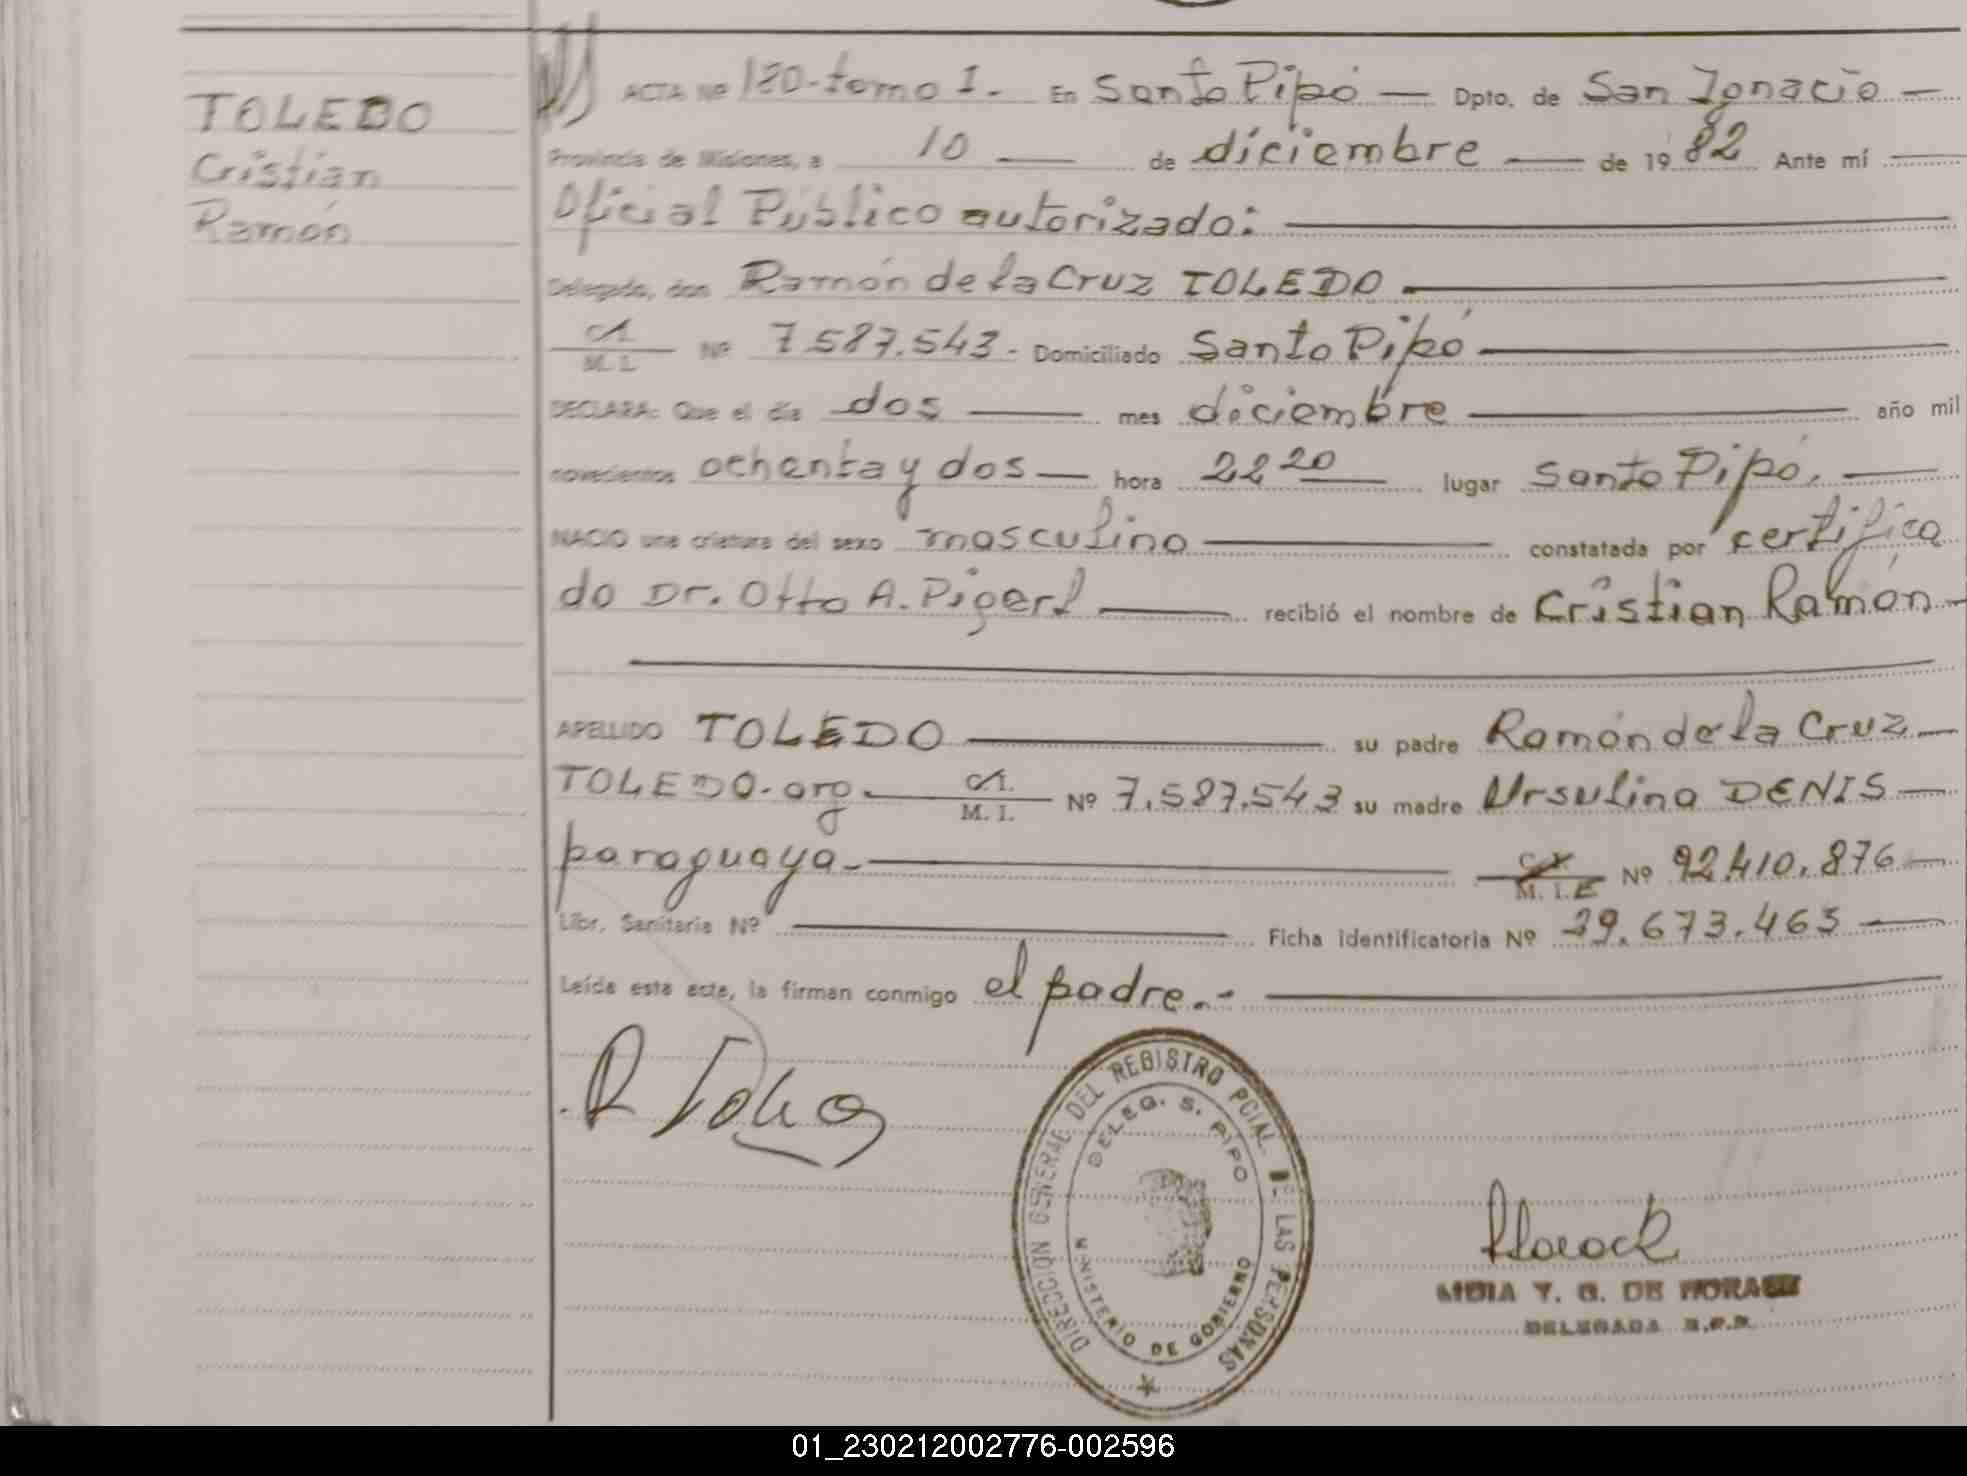 TOLEDO
Cristian
Ramón
ACTA Nº 120-tomo I.- En Santo Pipó — Dpto. de San Ignacio —
Provincia de Misiones, a 10 — de diciembre — de 1982 Ante mí
Oficial Público autorizado:
Delegado, don Ramón de la Cruz TOLEDO
C.I.
M. I. Nº 7.587.543.- Domiciliado Santo Pipó
DECLARA: Que el día dos — mes diciembre — año mil
novecientos ochenta y dos — hora 22 20 lugar Santo Pipó.
NACIO una criatura del sexo masculino — constatada por certifica
do Dr. Otto A. Pigerl — recibió el nombre de Cristian Ramón
APELLIDO TOLEDO — su padre Ramón de la Cruz
TOLEDO. arg. C.I.
M. I. Nº 7.587.543 su madre Ursulina DENIS
paraguaya.- M. I.E Nº 92.410.876
Libr. Sanitaria Nº — Ficha identificatoria Nº 29.673.463
Leída esta acta, la firman conmigo el padre.-
R Toledo
DIRECCIÓN GENERAL DEL REGISTRO PCIAL. DE LAS PERSONAS
DELEG. S. PIPO
MINISTERIO DE GOBIERNO
Y. G. DE
DELEGADA R.P.P.
01_230212002776-002596